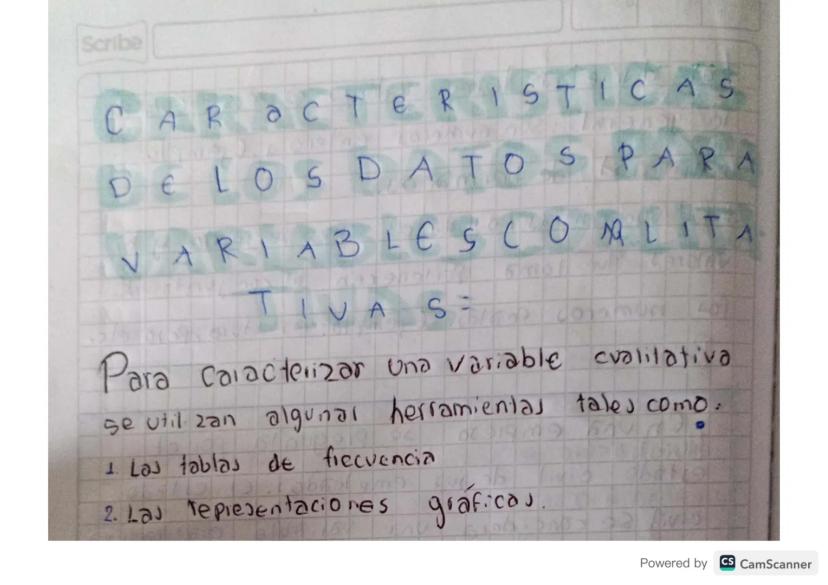 Scribe
CARaCTERISTICAS
DE LOS DATOS PARA
VARIABLES CO LITA
TIVAS=
Para caracterizar una variable cualitativa
se utilizan algunas herramientas tales como:
1. Las tablas de frecuencia
2. Las representaciones gráficas.
Powered by CS CamScanner